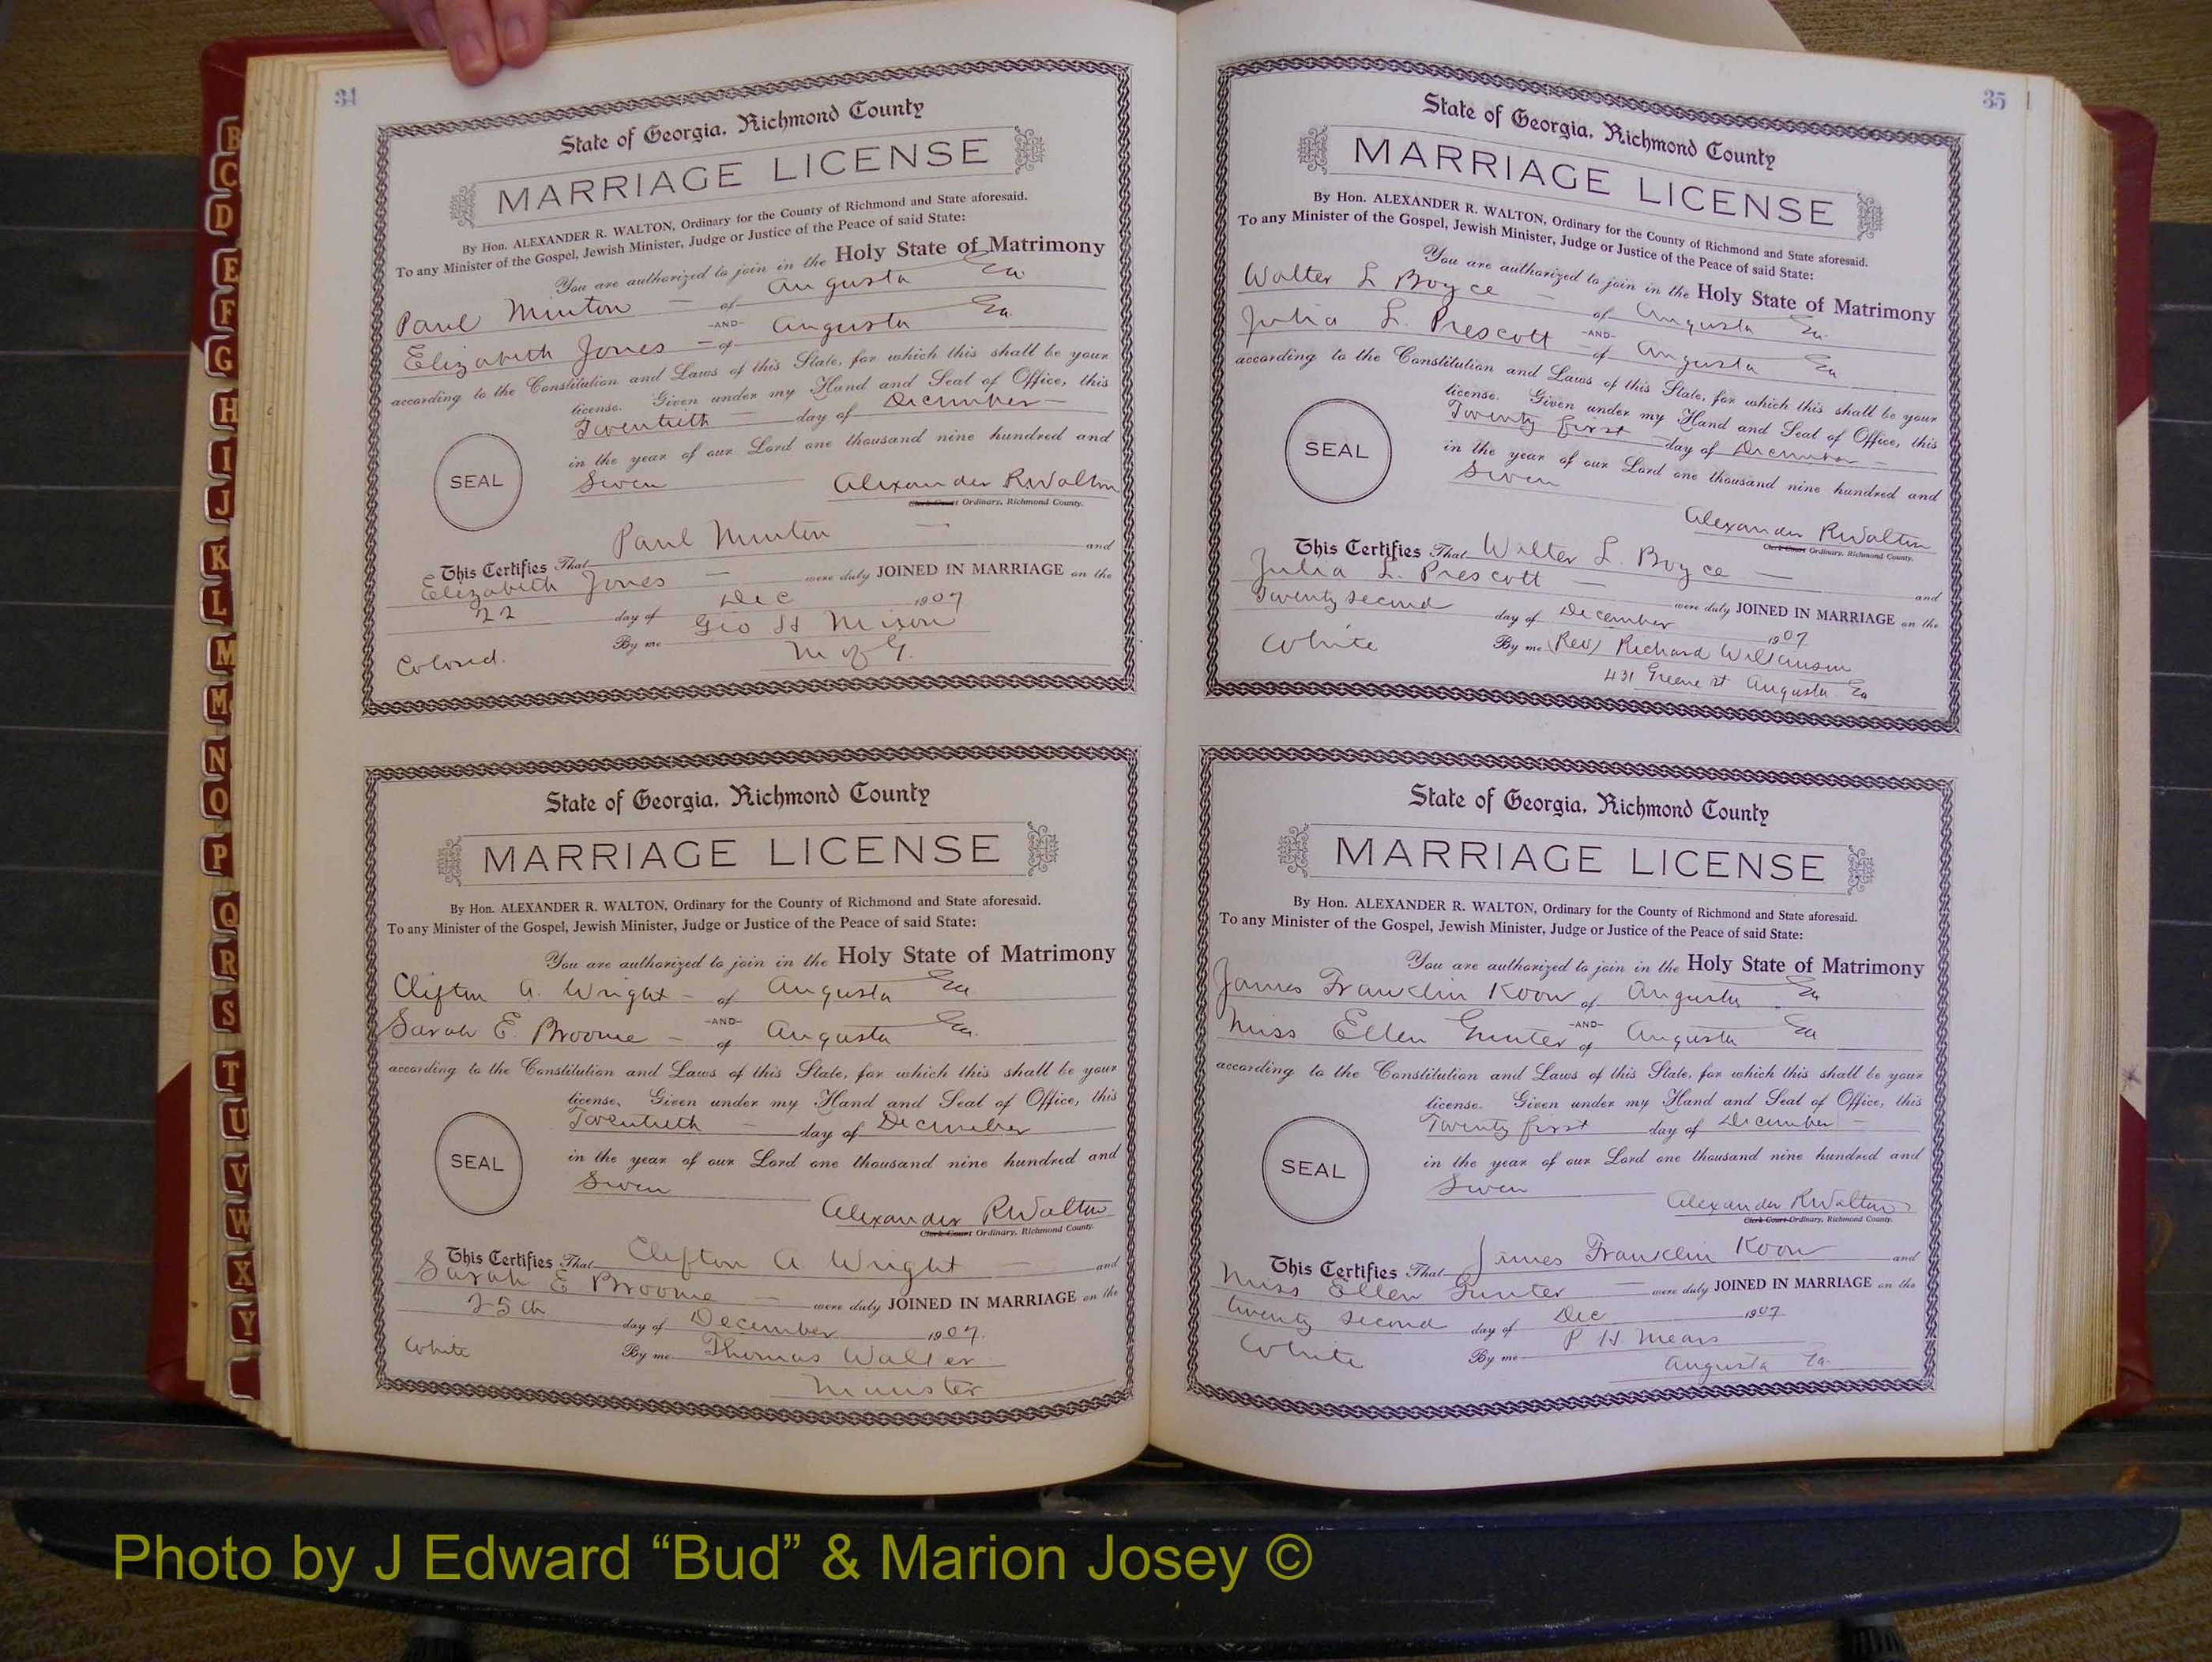 34
State of Georgia, Richmond County
MARRIAGE LICENSE
By Hon. ALEXANDER R. WALTON, Ordinary for the County of Richmond and State aforesaid.
To any Minister of the Gospel, Jewish Minister, Judge or Justice of the Peace of said State:
You are authorized to join in the Holy State of Matrimony
Paul Minton - of Augusta Ga
-AND-
Elizabeth Jones - of Augusta Ga.
according to the Constitution and Laws of this State, for which this shall be your
license. Given under my Hand and Seal of Office, this
Twentieth day of December
SEAL
in the year of our Lord one thousand nine hundred and
Seven
Alexander R Walton
Clerk Court Ordinary, Richmond County.
This Certifies That Paul Minton and
Elizabeth Jones were duly JOINED IN MARRIAGE on the
22 day of Dec 1907
By me Geo H Nixon
Colored. M of G.
State of Georgia, Richmond County
MARRIAGE LICENSE
By Hon. ALEXANDER R. WALTON, Ordinary for the County of Richmond and State aforesaid.
To any Minister of the Gospel, Jewish Minister, Judge or Justice of the Peace of said State:
You are authorized to join in the Holy State of Matrimony
Clifton A. Wright - of Augusta Ga
-AND-
Sarah E. Broome - of Augusta Ga.
according to the Constitution and Laws of this State, for which this shall be your
license. Given under my Hand and Seal of Office, this
Twentieth day of December
SEAL
in the year of our Lord one thousand nine hundred and
Seven
Alexander R Walton
Clerk Court Ordinary, Richmond County.
This Certifies That Clifton A. Wright and
Sarah E Broome were duly JOINED IN MARRIAGE on the
25th day of December 1907.
White By me Thomas Walker
Minister
35
State of Georgia, Richmond County
MARRIAGE LICENSE
By Hon. ALEXANDER R. WALTON, Ordinary for the County of Richmond and State aforesaid.
To any Minister of the Gospel, Jewish Minister, Judge or Justice of the Peace of said State:
You are authorized to join in the Holy State of Matrimony
Walter L Boyce - of Augusta Ga.
-AND-
Julia L. Prescott - of Augusta Ga
according to the Constitution and Laws of this State, for which this shall be your
license. Given under my Hand and Seal of Office, this
Twenty first day of December
SEAL
in the year of our Lord one thousand nine hundred and
Seven
Alexander R Walton
Clerk Court Ordinary, Richmond County.
This Certifies That Walter L. Boyce and
Julia L. Prescott were duly JOINED IN MARRIAGE on the
Twenty second day of December 1907
White By me (Rev) Richard Wilkinson
431 Greene st Augusta. Ga
State of Georgia, Richmond County
MARRIAGE LICENSE
By Hon. ALEXANDER R. WALTON, Ordinary for the County of Richmond and State aforesaid.
To any Minister of the Gospel, Jewish Minister, Judge or Justice of the Peace of said State:
You are authorized to join in the Holy State of Matrimony
James Franklin Koon of Augusta Ga
-AND-
Miss Ellen Gunter of Augusta Ga
according to the Constitution and Laws of this State, for which this shall be your
license. Given under my Hand and Seal of Office, this
Twenty first day of December
SEAL
in the year of our Lord one thousand nine hundred and
Seven
Alexander R Walton
Clerk Court Ordinary, Richmond County.
This Certifies That James Franklin Koon and
Miss Ellen Gunter were duly JOINED IN MARRIAGE on the
twenty second day of Dec 1907
White By me P H Mears
Augusta Ga.
B
C
D
E
F
G
H
I
J
K
L
M
Mc
N
O
P
Q
R
S
T
U
V
W
X
Y
Photo by J Edward “Bud” & Marion Josey ©